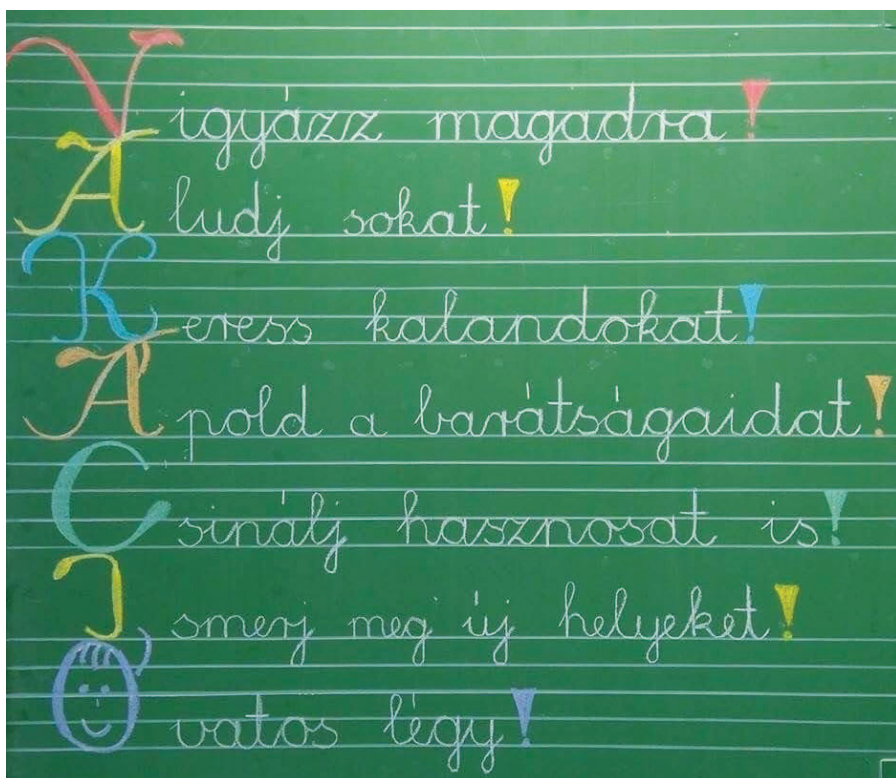 Vigyázz magadra!
Aludj sokat!
Keress kalandokat!
Ápold a barátságaidat!
Csinálj hasznosat is!
Ismerj meg új helyeket!
Ovatos légy!